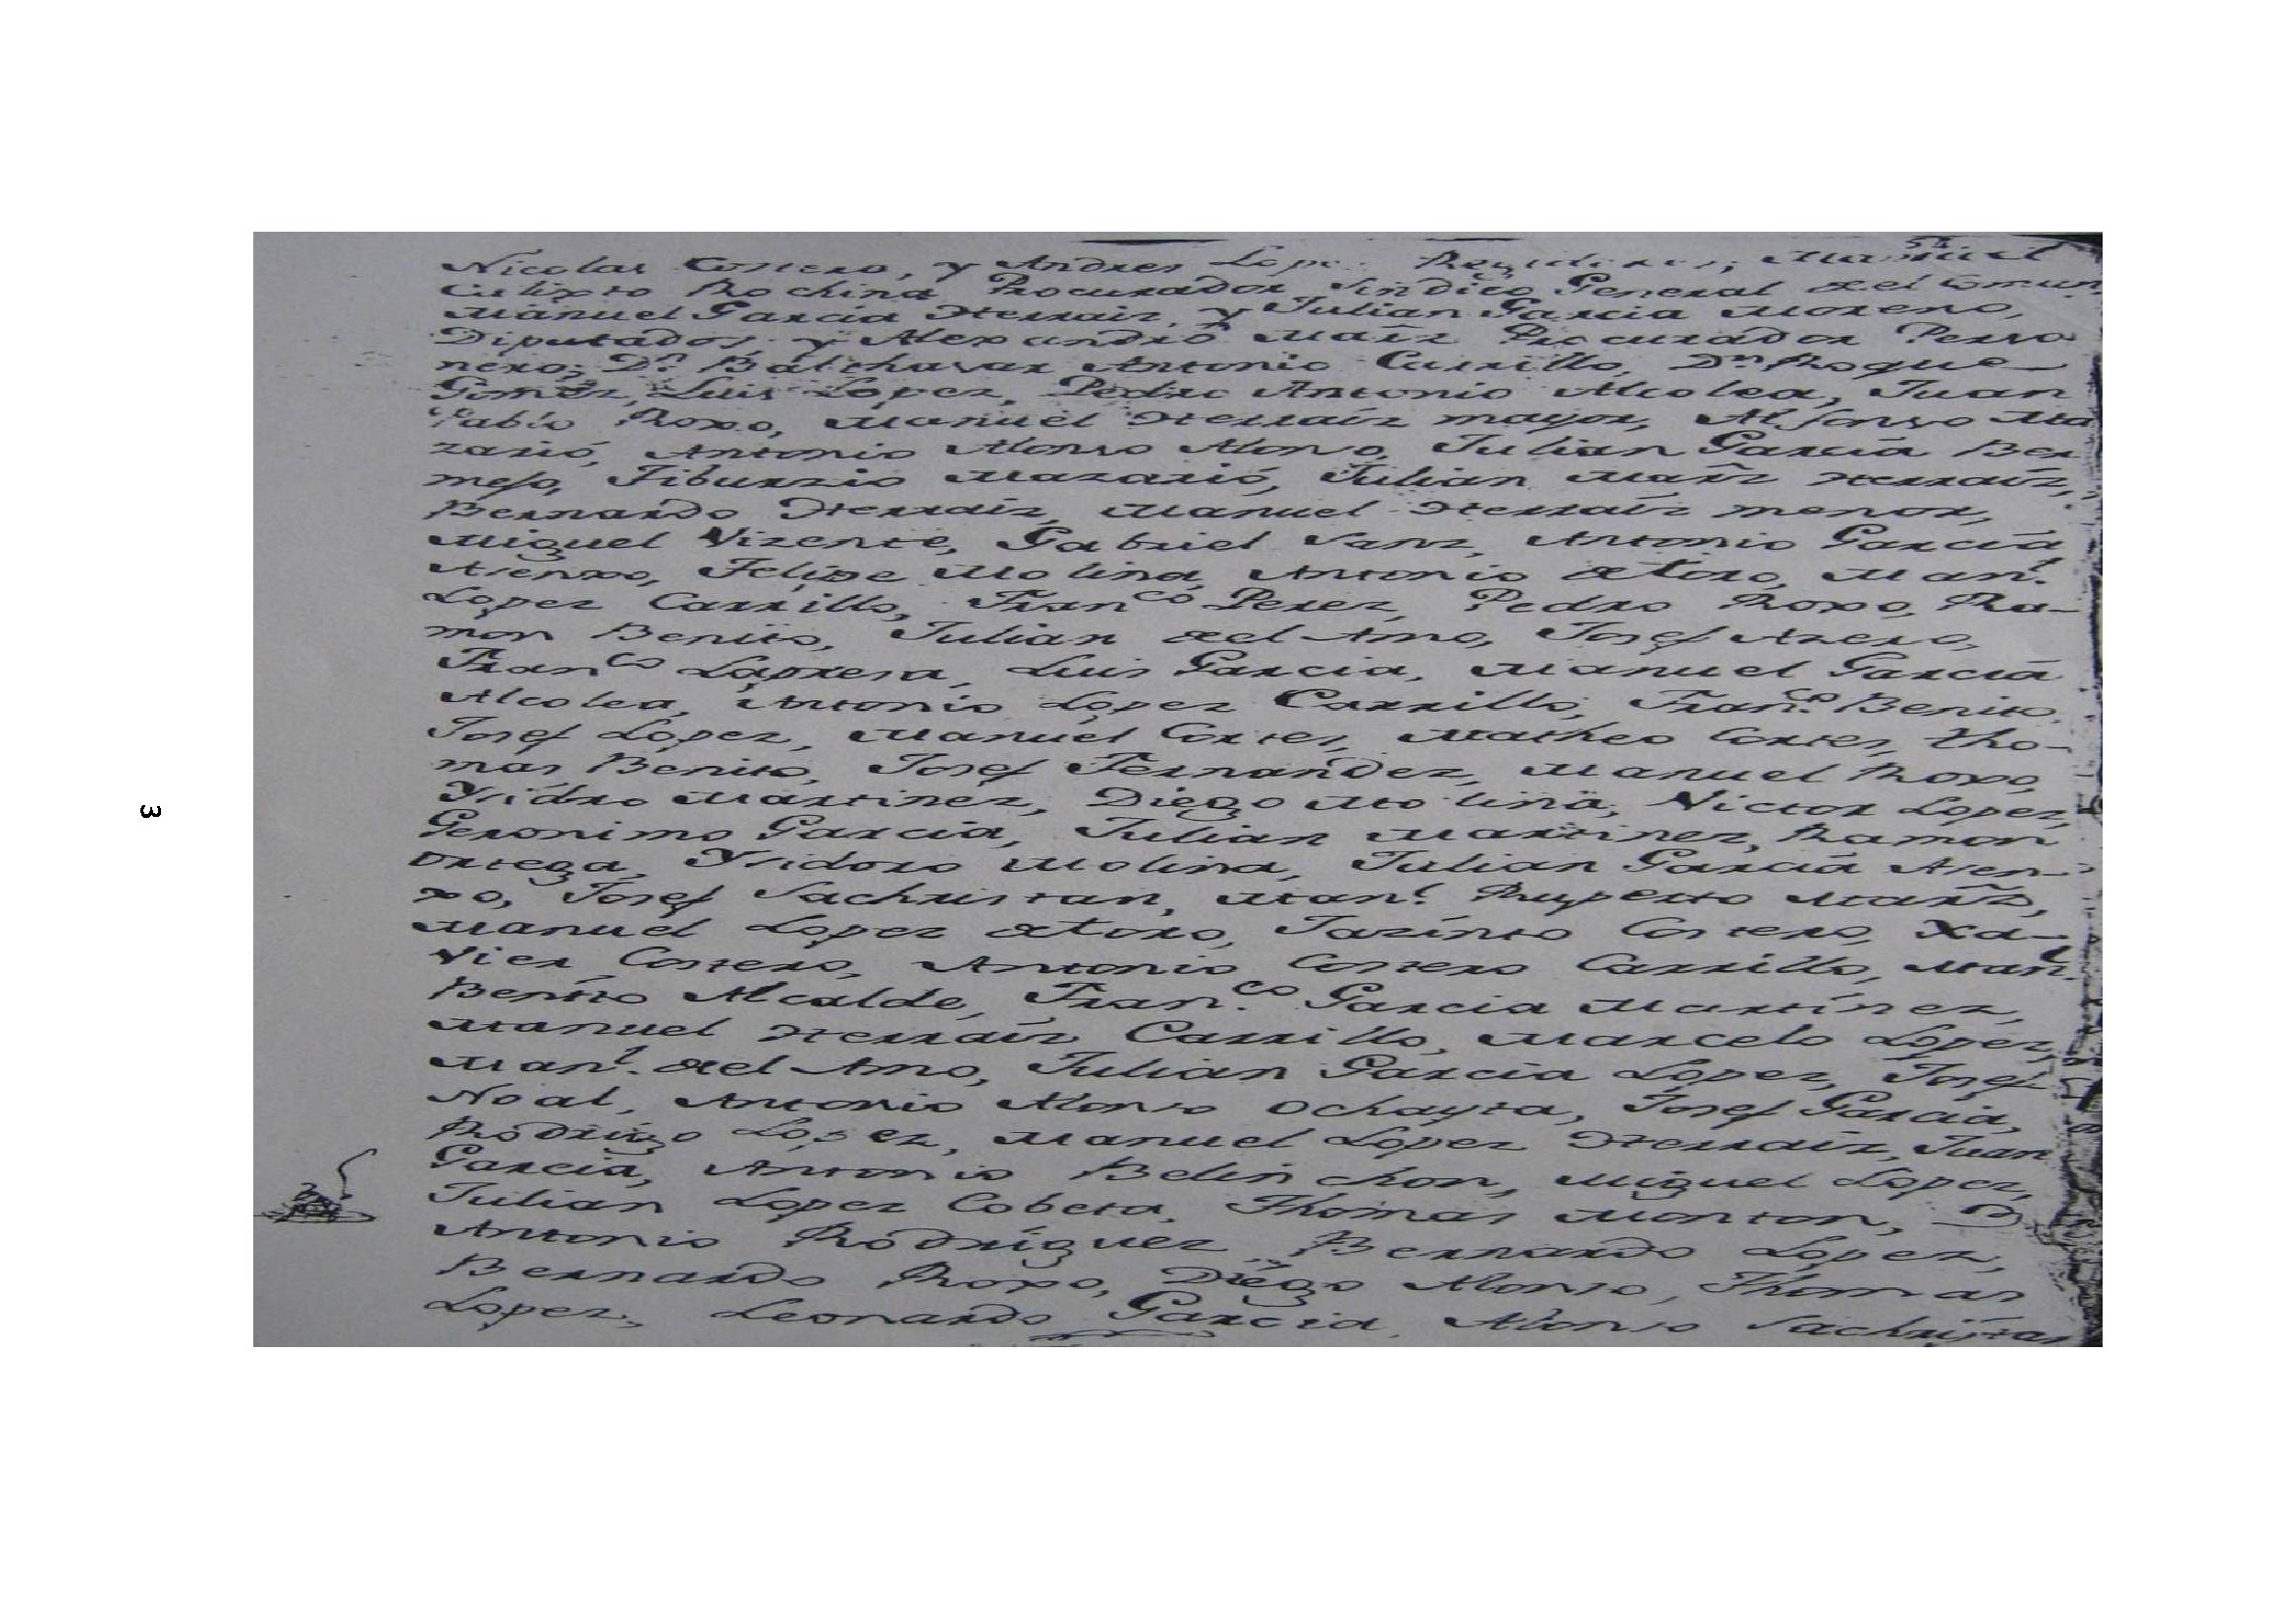 54
Nicolas Costero, y Andres Lopez Regidores; Manuel
Calixto Rochina Procurador Sindico General del Comun,
Manuel Garcia Herraiz, y Julian Garcia Moreno,
Diputados y Alexandro Mañz Procurador Perso
nero; Dn. Balthasar Antonio Carrillo, Dn Roque
Gomez, Luis Lopez, Pedro Antonio Alcolea, Juan
Pablo Roxo, Manuel Herraiz mayor, Alfonso Ma
zarió, Antonio Alonso Alonso, Julian Garcia Ber
mejo, Tiburzio Mazarió, Julian Mañz Herraiz,
Bernardo Herraiz, Manuel Herraiz menor,
Miguel Vizente, Gabriel Sanz, Antonio Garcia
Atenxo, Felipe Molina, Antonio de Toro, Manl.
Lopez Carrillo, Franco Perez, Pedro Roxo, Ra-
mon Benito, Julian del Amo, Josef
Franco Lapresa, Luis Garcia, Manuel Garcia
Alcolea, Antonio Lopez Carrillo, Franco. Benito,
Josef Lopez, Manuel Cortes, Matheo Cortes, tho-
mas Benito, Josef Fernandez, Manuel Roxo,
Ysidro Martinez, Diego Molina, Victor Lopez,
Geronimo Garcia, Julian Martinez, Ramon
Ortega, Ysidoro Molina, Julian Garcia Aten-
xo, Josef Sachristan, Manl. Ruperto Mañz,
Manuel Lopez de Toro, Jazinto Costero, Xa-
vier Costero, Antonio Costero Carrillo, Manl.
Benito Alcalde, Franco. Garcia Martinez,
Manuel Herraiz Carrillo, Marcelo Lopez,
Manl. del Amo, Julian Garcia Lopez, Josef
Noal, Antonio Alonso Ochayta, Josef Garcia,
Rodrigo Lopez, Manuel Lopez Herraiz, Juan
Garcia, Antonio Belinchon, Miguel Lopez,
Julian Lopez Cobeta, Thomas Monton, D
Antonio Rodriguez, Bernardo Lopez,
Bernardo Roxo, Diego Alonso, Thomas
Lopez, Leonardo Garcia, Alonso Sachristan
3